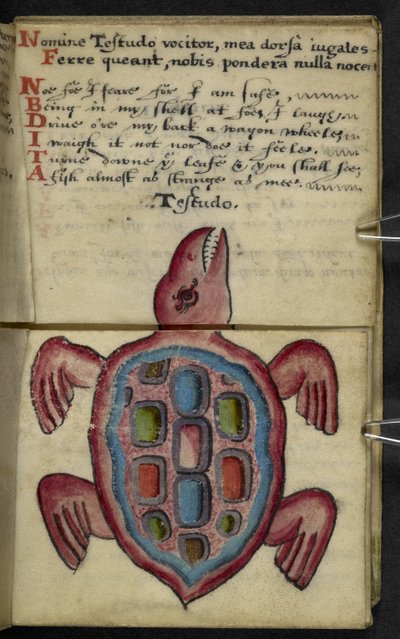 Nomine Testudo vocitor, mea dorsa iugales
Ferre queant, nobis pondera nulla nocent
Noe foe I feare for I am safe,
Being in my shell at foes I laugh,
Drive o're my back a wagon wheeles
I waigh it not nor doe it feele.
Turne downe yᵉ leafe & you shall see,
A fish almost as strange as mee.
Testudo.